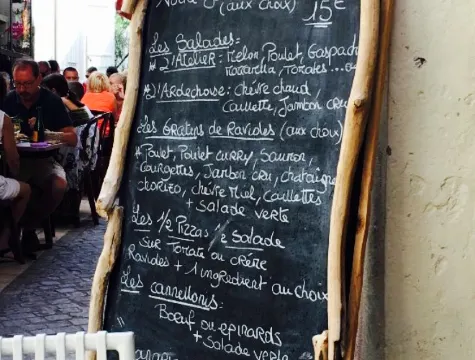 (aux choix) 15€
Les Salades:
* L'Atelier: Melon, Poulet, Gaspach
Mozzarella, Tomates...
L'Ardechoise: chèvre chaud,
Caillette, Jambon cru
Les Gratins de Ravioles (aux choix)
* Poulet, Poulet curry, Saumon,
Courgettes, Jambon cru, chataigne
chorizo, chèvre Miel, Caillettes
+ Salade verte
Les 1/2 Pizzas & Salade
Sur Tomate ou crème
Ravioles + 1 ingredient au choix
Les cannellonis:
Boeuf ou epinards
+ Salade verte